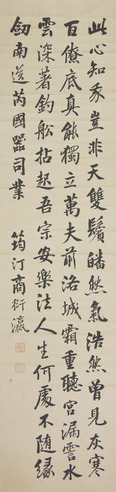 此心知我豈非天雙鬢皤然氣浩然曾見灰寒
百僚底真能獨立萬夫前洛城霜重聽宮漏霅水
雲深著釣船拈起吾宗安樂法人生何處不隨緣
劍南送芮國器司業
筠汀商衍瀛